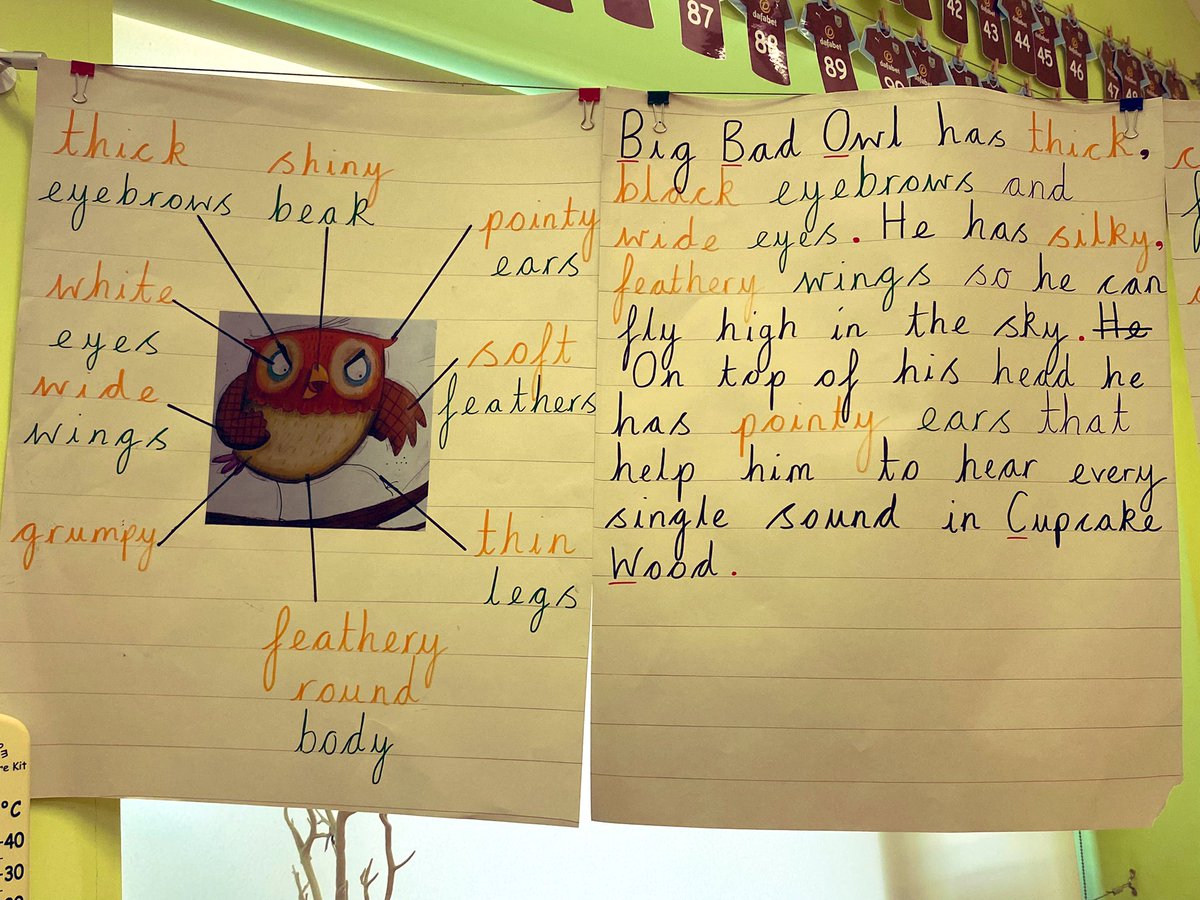 87
88
89
90
42
43
44
45
46
47
48
dafabet
dafabet
dafabet
thick
eyebrows
shiny
beak
pointy
ears
white
eyes
wide
wings
soft
feathers
grumpy
thin
legs
feathery
round
body
Big Bad Owl has thick,
black eyebrows and
wide eyes. He has silky,
feathery wings so he can
fly high in the sky. He
On top of his head he
has pointy ears that
help him to hear every
single sound in Cupcake
Wood.
re Kit
°C
-40
-30